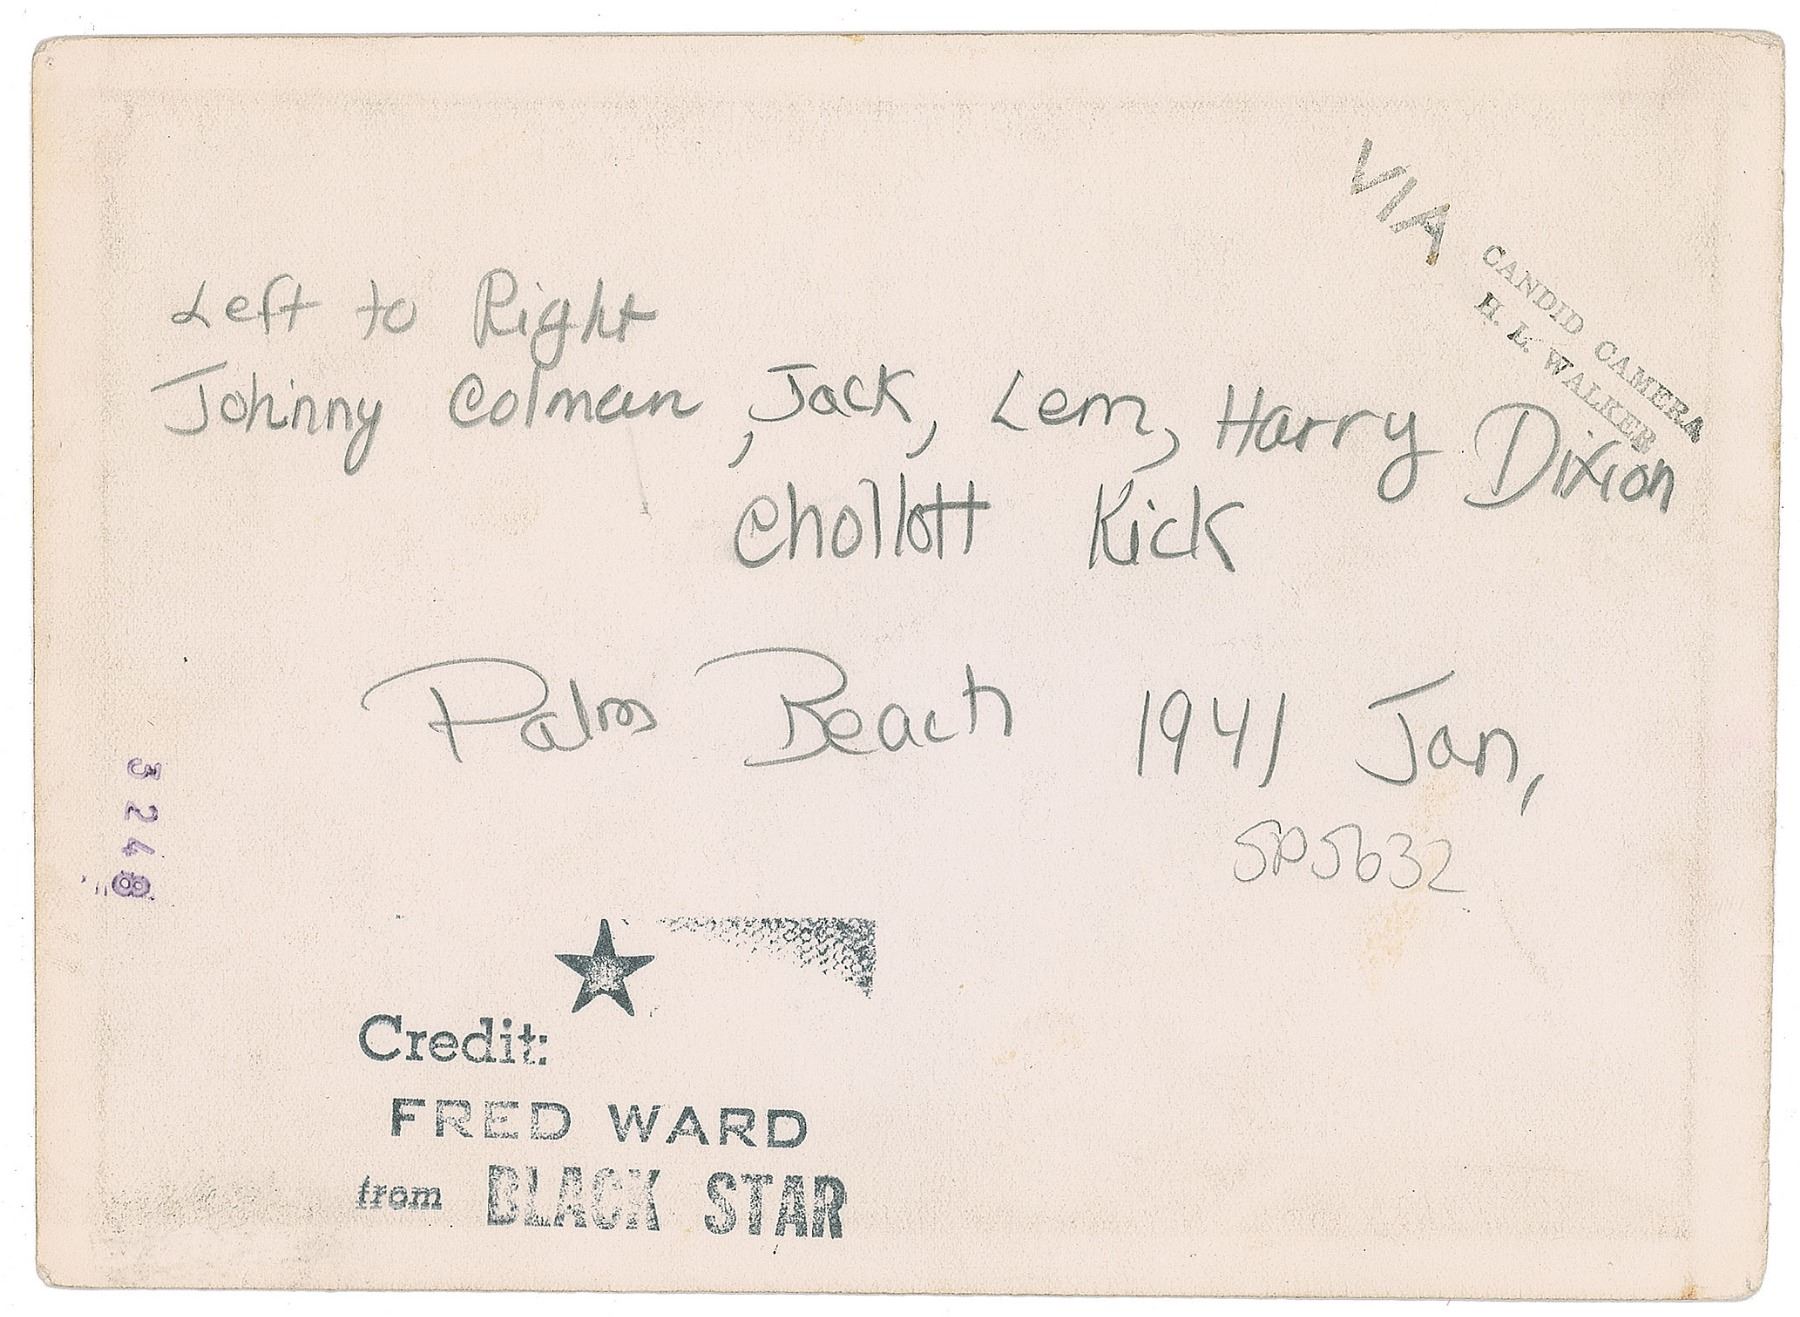 VIA
CANDID CAMERA
H. L. WALKER
Left to Right
Johnny Colman, Jack, Lem, Harry Dixion
Chollott Kick
Palm Beach 1941 Jan,
SP5632
3248
Credit:
FRED WARD
from BLACK STAR